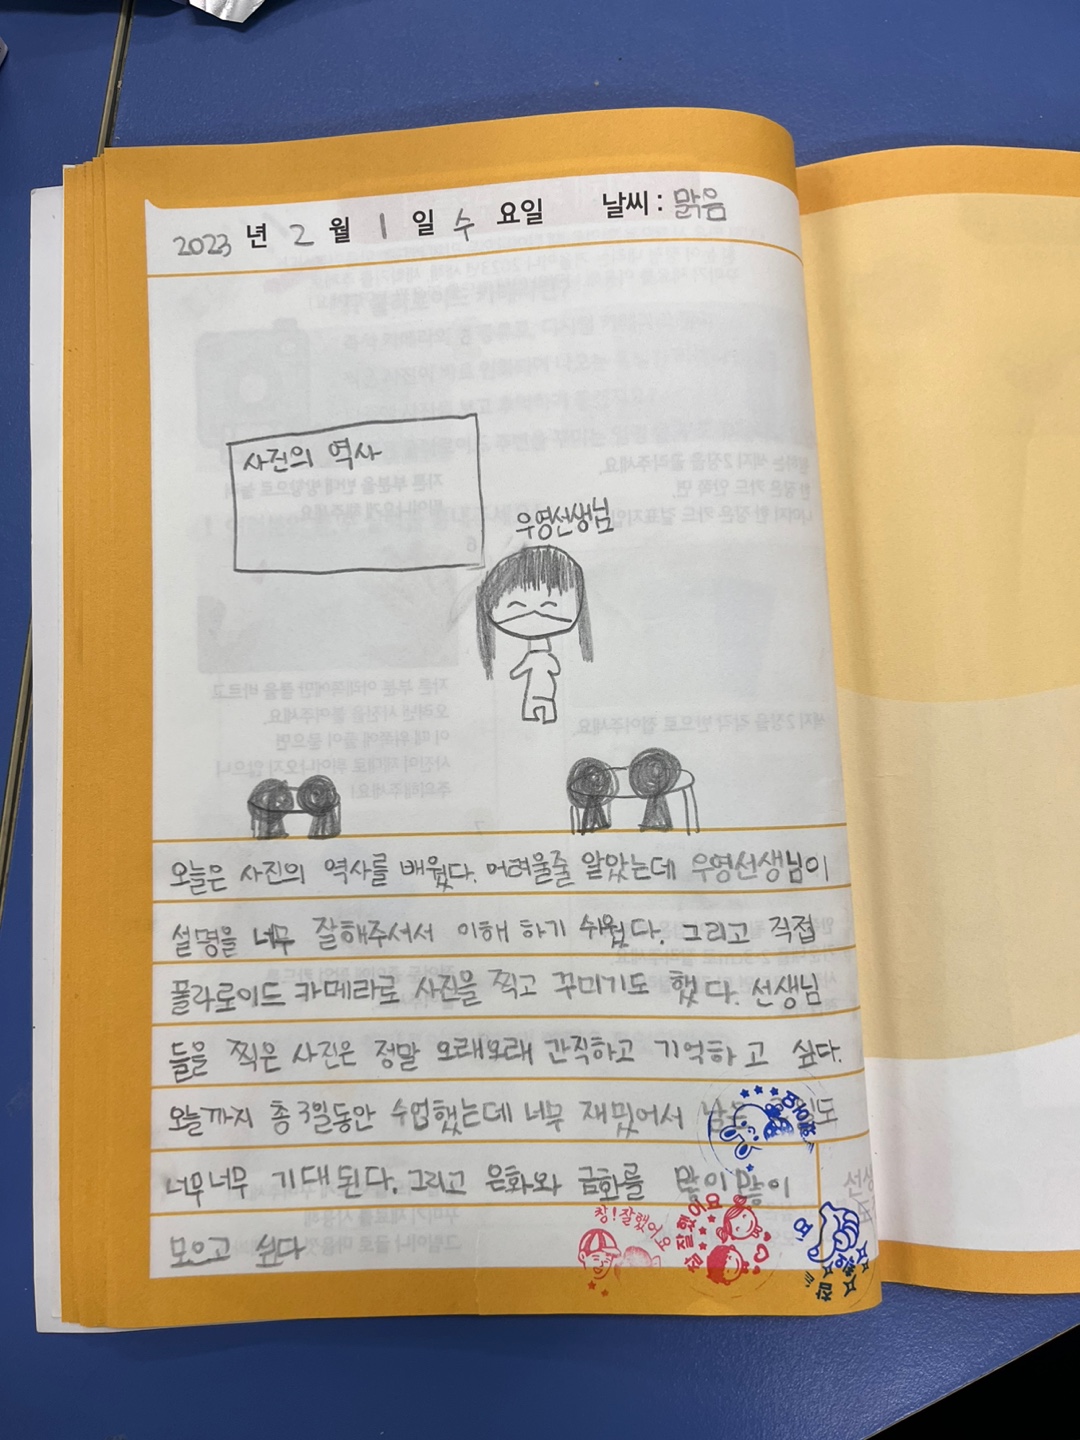 2023 년 2 월 1 일 수 요일 날씨 : 맑음
사진의 역사
우영선생님
오늘은 사진의 역사를 배웠다. 어려울줄 알았는데 우영선생님이
설명을 너무 잘해주셔서 이해 하기 쉬웠다. 그리고 직접
폴라로이드 카메라로 사진을 찍고 꾸미기도 했다. 선생님
들을 찍은 사진은 정말 오래오래 간직하고 기억하고 싶다.
오늘까지 총 3일동안 수업했는데 너무 재밌어서 남은
너무너무 기대된다. 그리고 은화와 금화를 많이많이
모으고 싶다
참!잘했어요
참 잘했어요